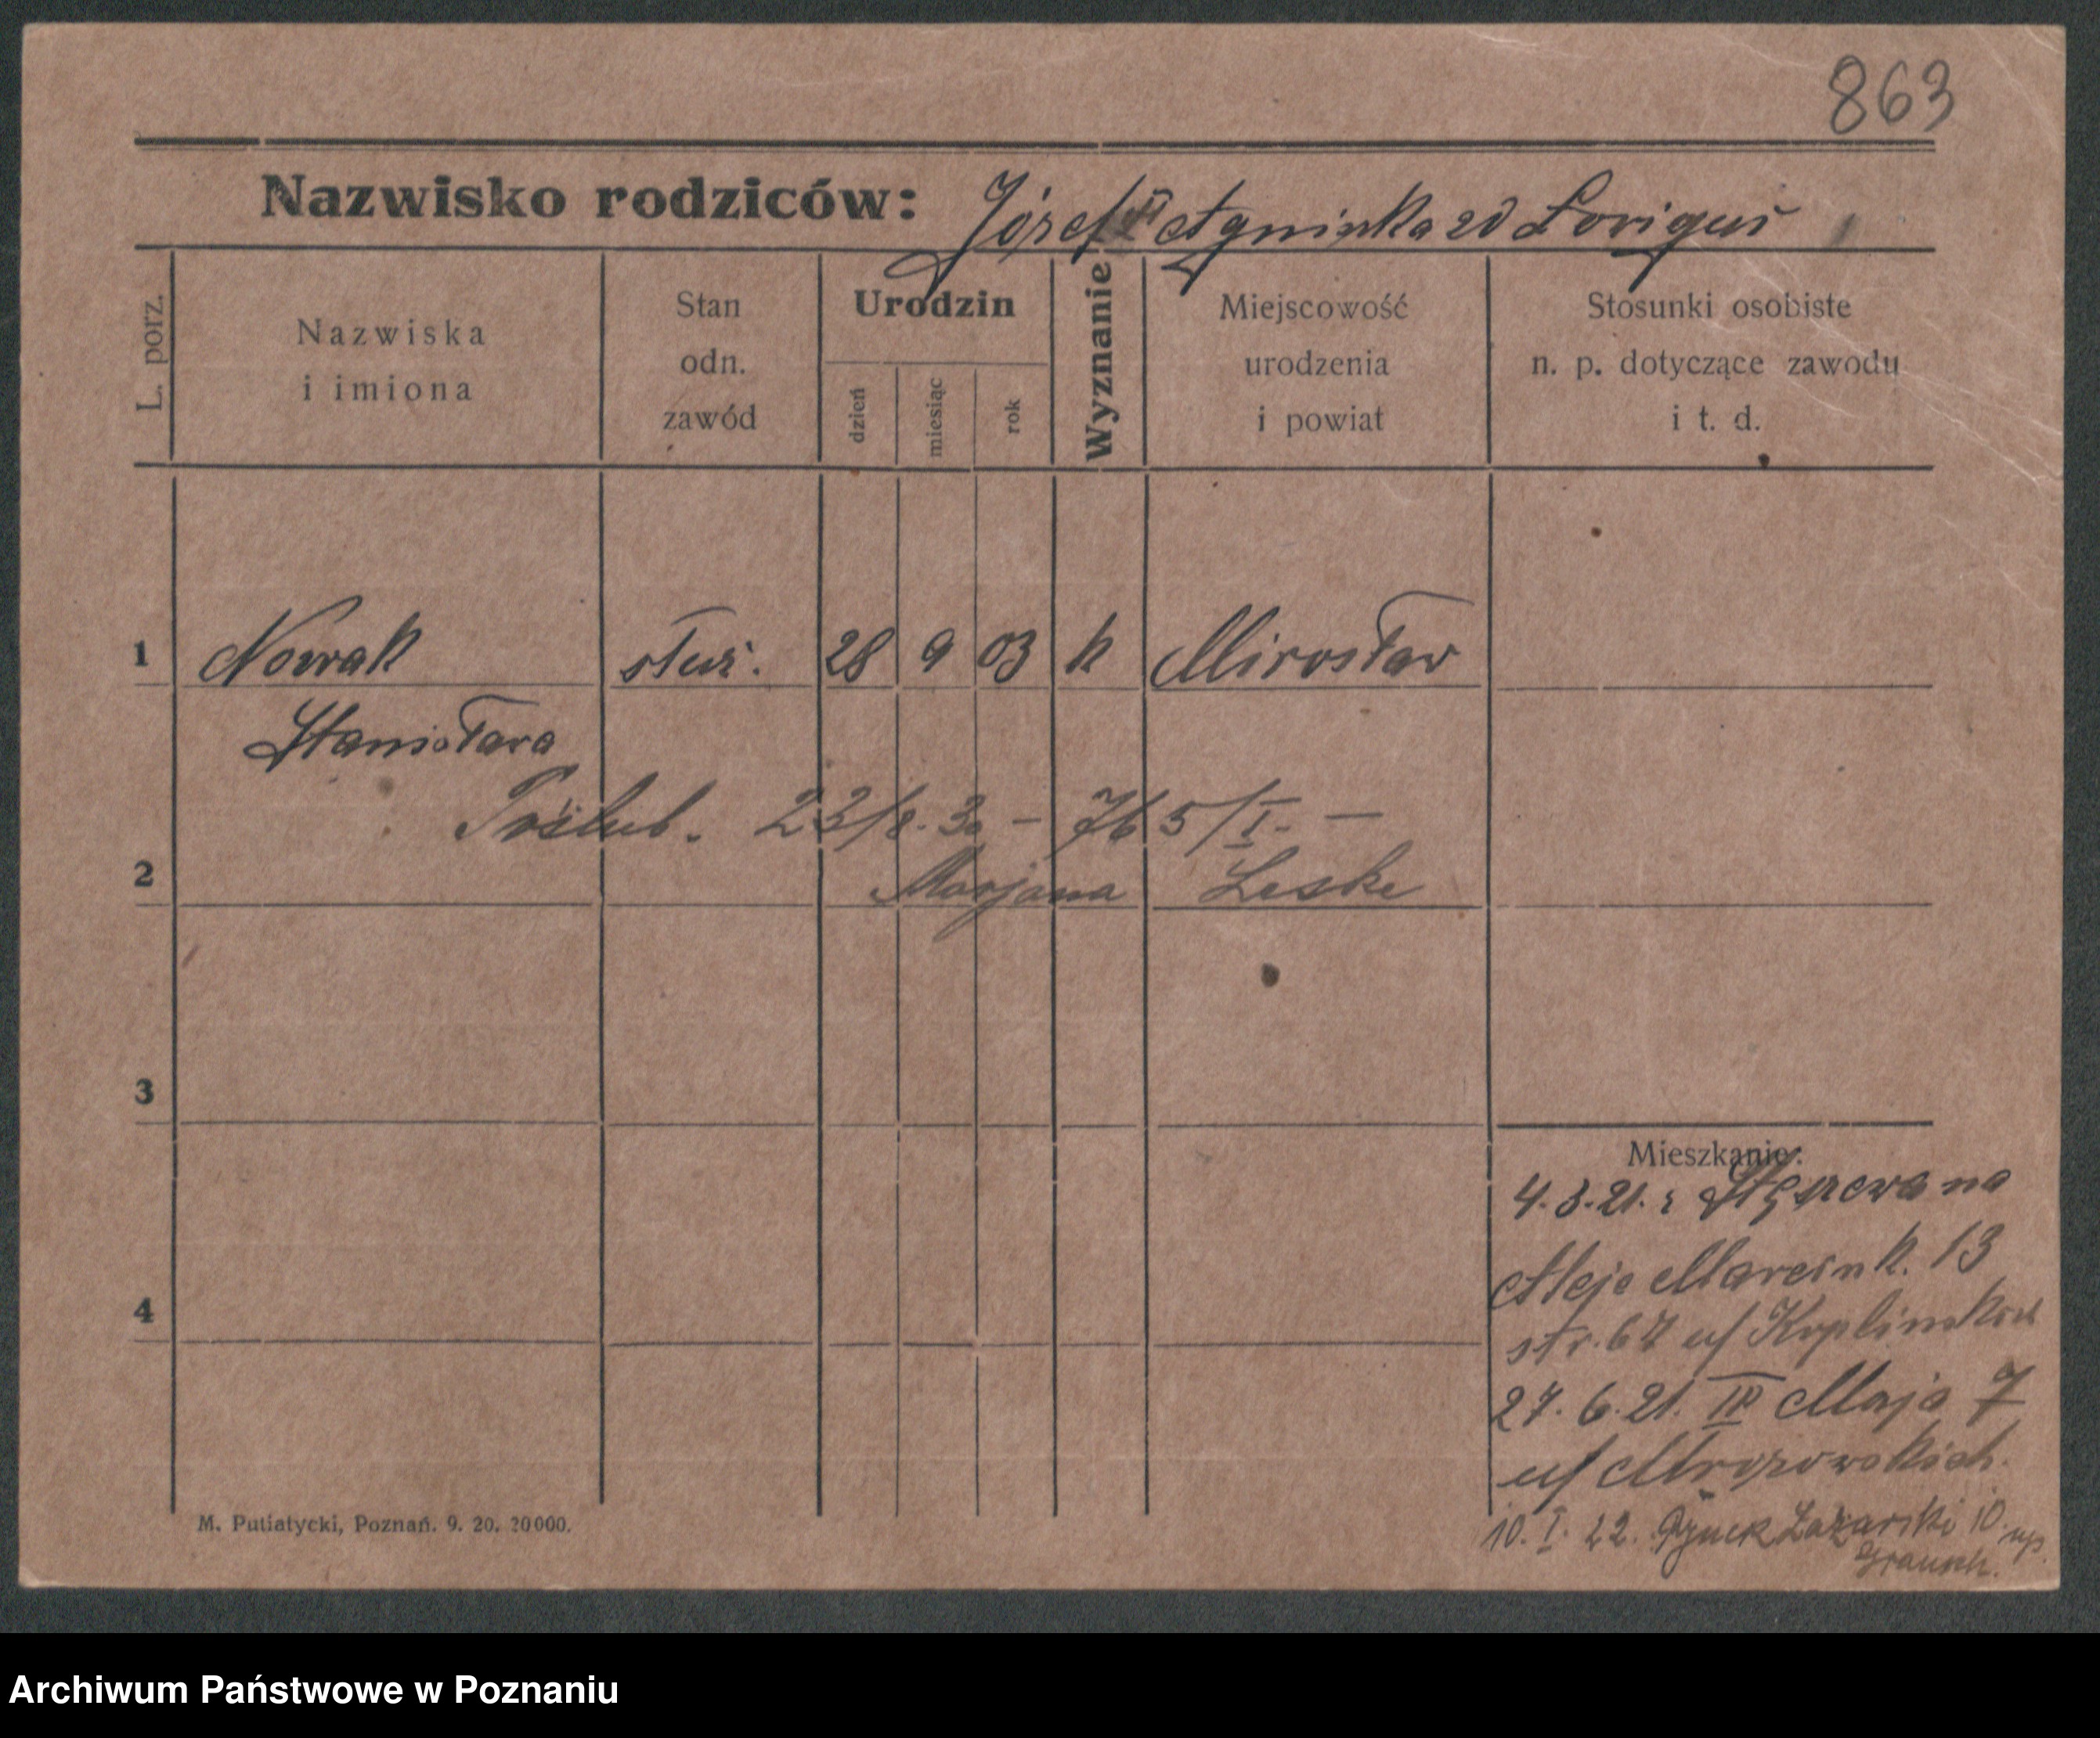 863
Nazwisko rodziców: Józef i Agnieszka zd
L. porz.
Nazwiska
i imiona
Stan
odn.
zawód
Urodzin
dzień
miesiąc
rok
Wyznanie
Miejscowość
urodzenia
i powiat
Stosunki osobiste
n. p. dotyczące zawodu
i t. d.
1 Nowak służ. 28 9 03 k Mirosław
Stanisława
Poślub. 23/8. 30 – 765/I. –
2 Marjana Leske
3
Mieszkanie:
4.3.21. z
Aleje Marcink. 13
4
str. 67 u/
27. 6. 21. III Maja 7
u/ Mrozowskich.
10. I. 22. Rynek Łazarski 10
M. Putiatycki, Poznań. 9. 20. 20000.
Archiwum Państwowe w Poznaniu